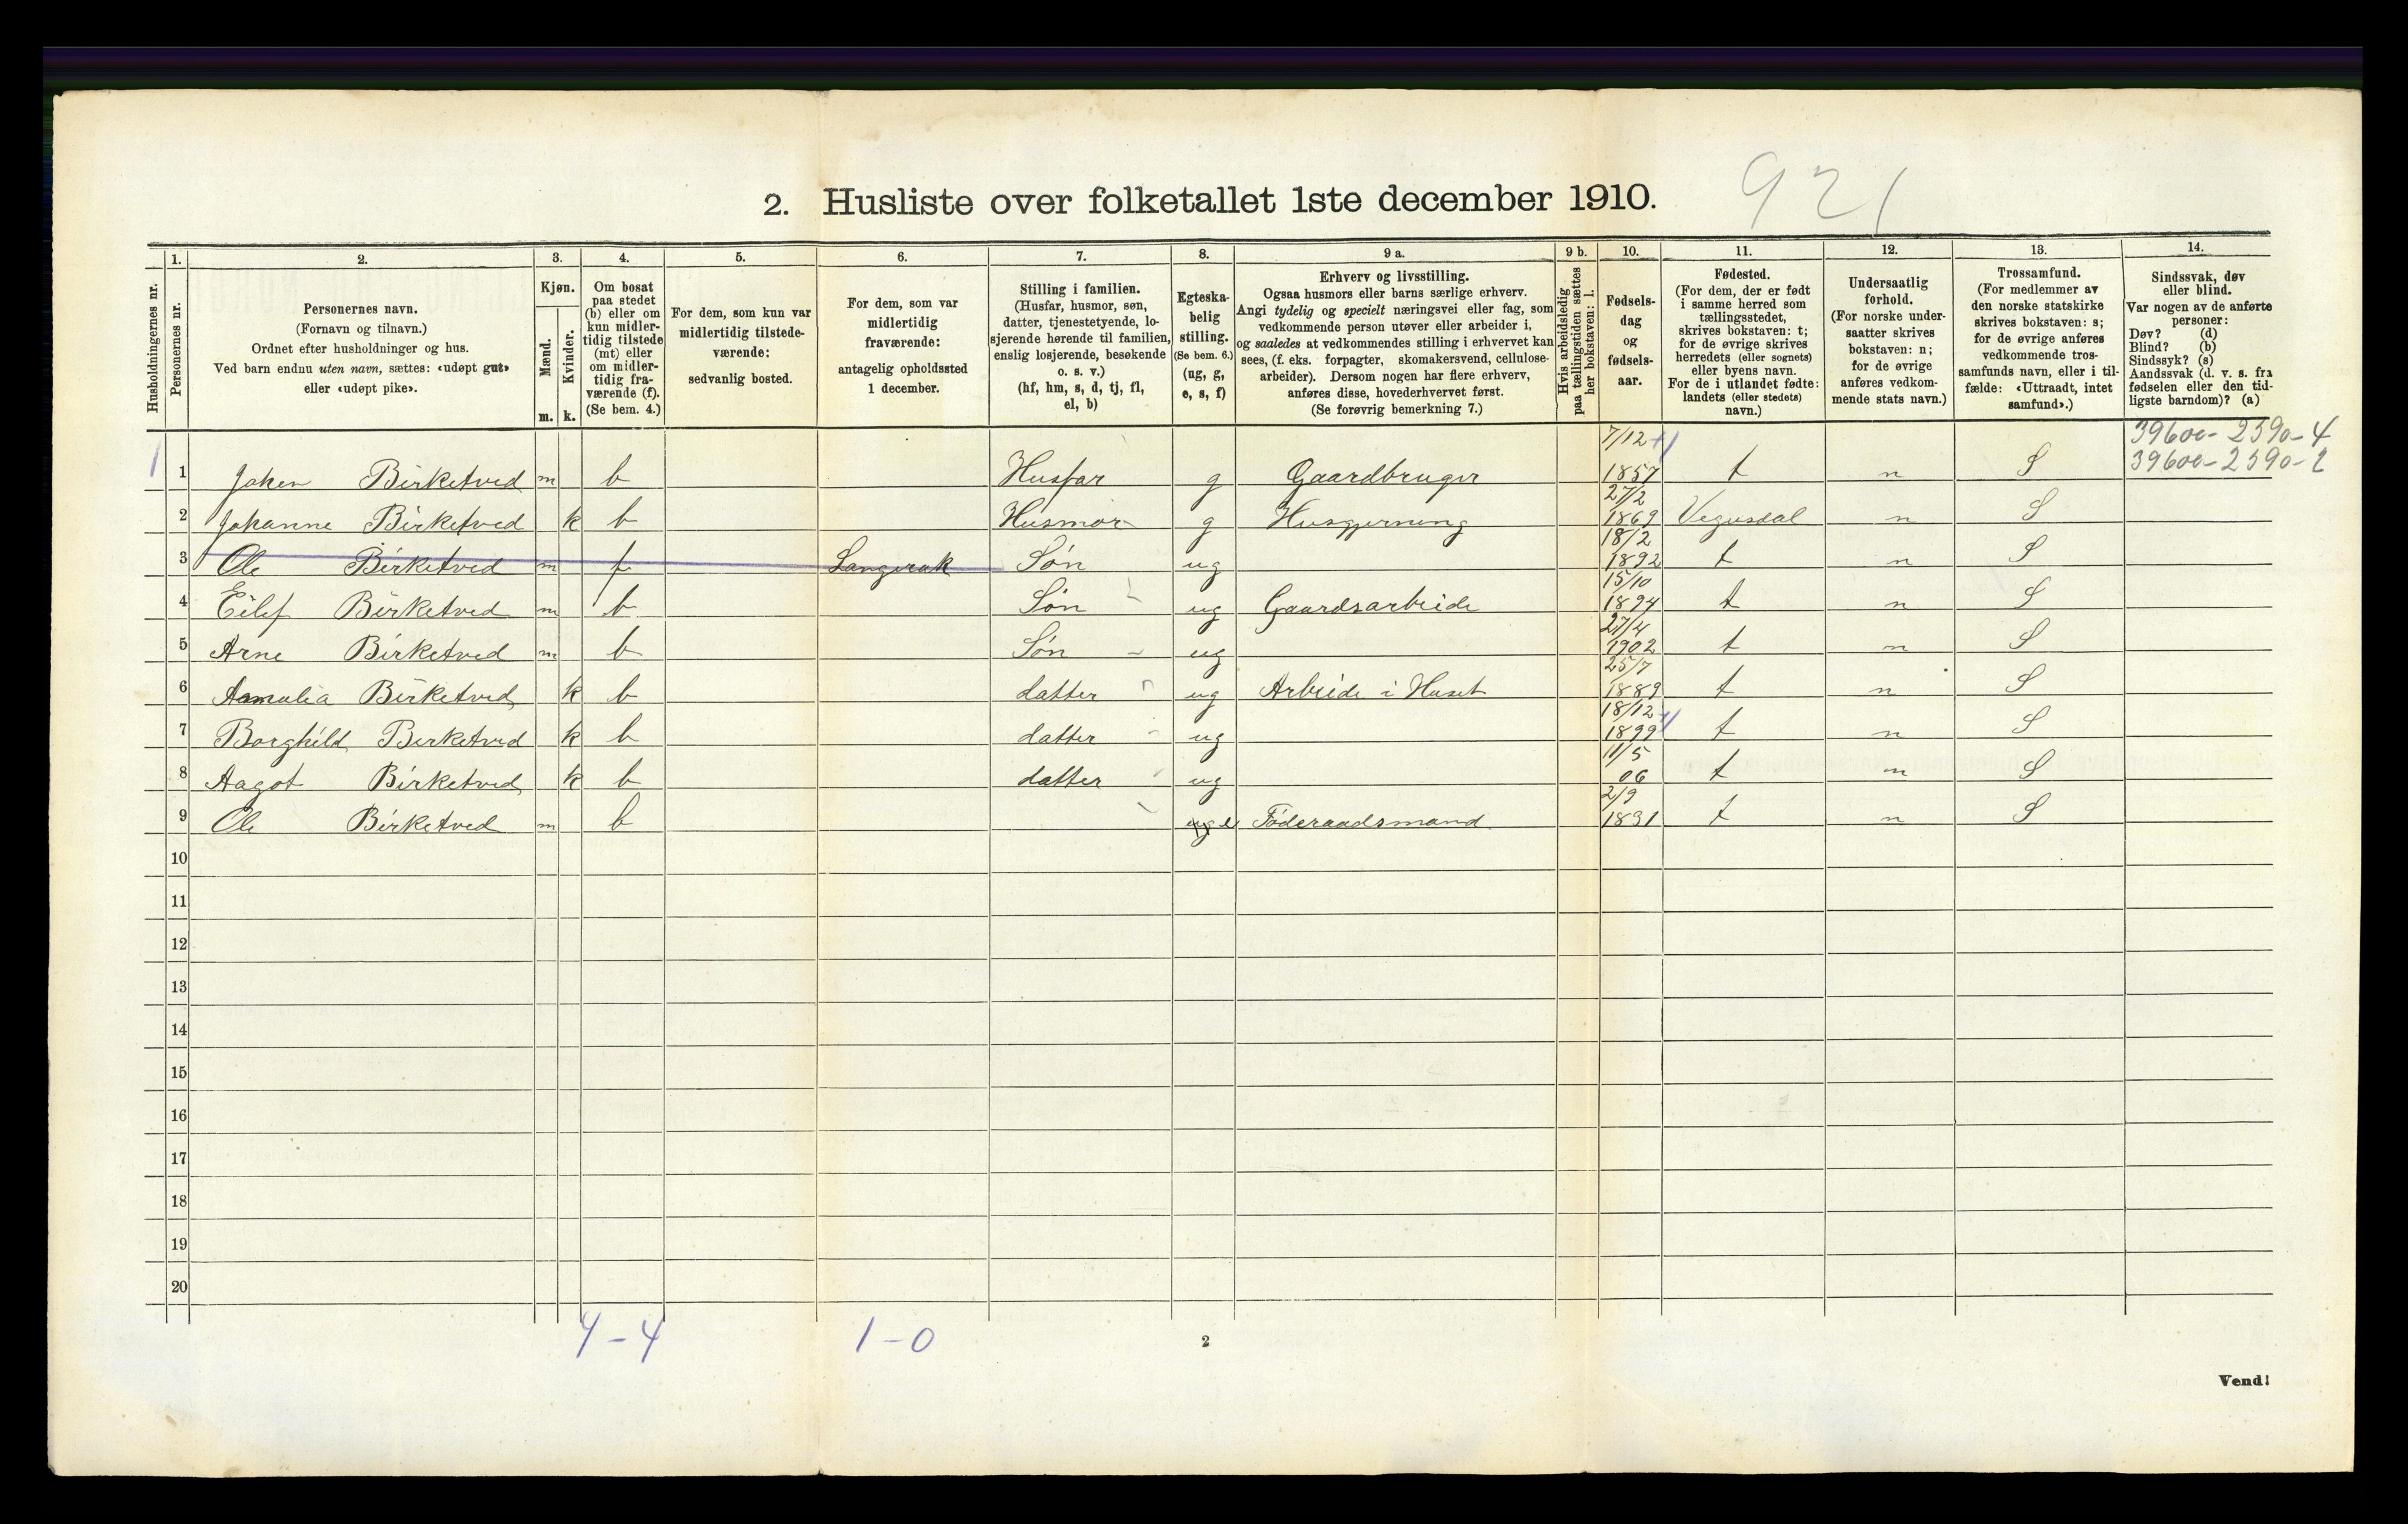 921
2. Husliste over folketallet 1ste december 1910.
Husholdningernes nr.
1.
Personernes nr.
2.
Personernes navn.
(Fornavn og tilnavn.)
Ordnet efter husholdninger og hus.
Ved barn endnu uten navn, sættes: «udøpt gut»
eller «udøpt pike».
3.
Kjøn.
Mænd.
Kvinder.
m. k.
4.
Om bosat
paa stedet
(b) eller om
kun midler-
tidig tilstede
(mt) eller
om midler-
tidig fra-
værende (f).
(Se bem. 4.)
5.
For dem, som kun var
midlertidig tilstede-
værende:
sedvanlig bosted.
6.
For dem, som var
midlertidig
fraværende:
antagelig opholdssted
1 december.
7.
Stilling i familien.
(Husfar, husmor, søn,
datter, tjenestetyende, lo-
sjerende hørende til familien,
enslig losjerende, besøkende
o. s. v.)
(hf, hm, s, d, tj, fl,
el, b)
8.
Egteska-
belig
stilling.
(Se bem. 6.)
(ug, g,
e, s, f)
9 a.
Erhverv og livsstilling.
Ogsaa husmors eller barns særlige erhverv.
Angi tydelig og specielt næringsvei eller fag, som
vedkommende person utøver eller arbeider i,
og saaledes at vedkommendes stilling i erhvervet kan
sees, (f. eks. forpagter, skomakersvend, cellulose-
arbeider). Dersom nogen har flere erhverv,
anføres disse, hovederhvervet først.
(Se forøvrig bemerkning 7.)
9 b.
Hvis arbeidsledig
paa tællingstiden sættes
her bokstaven: l.
10.
Fødsels-
dag
og
fødsels-
aar.
11.
Fødested.
(For dem, der er født
i samme herred som
tællingsstedet,
skrives bokstaven: t;
for de øvrige skrives
herredets (eller sognets)
eller byens navn.
For de i utlandet fødte:
landets (eller stedets)
navn.)
12.
Undersaatlig
forhold.
(For norske under-
saatter skrives
bokstaven: n;
for de øvrige
anføres vedkom-
mende stats navn.)
13.
Trossamfund.
(For medlemmer av
den norske statskirke
skrives bokstaven: s;
for de øvrige anføres
vedkommende tros-
samfunds navn, eller i til-
fælde: «Uttraadt, intet
samfund».)
14.
Sindssvak, døv
eller blind.
Var nogen av de anførte
personer:
Døv? (d)
Blind? (b)
Sindssyk? (s)
Aandssvak (d. v. s. fra
fødselen eller den tid-
ligste barndom)? (a)
1 1 Johen Birketved m b Husfar g Gaardbruger 7/12 1857 t n S
2 Johanne Birketved k b Husmor g Husgjerning 27/2 1869 Vegusdal n S
3 Ole Birketved m f Langerak Søn ug 18/2 1892 t n S
4 Eilef Birketved m b Søn ug Gaardsarbeide 15/10 1894 t n S
5 Arne Birketved m b Søn ug 27/4 1902 t n S
6 Aamalia Birketved k b datter ug Arbeide i Huset 25/7 1889 t n S
7 Borghild Birketved k b datter ug 18/12 1899 t n S
8 Aagot Birketved k b datter ug 11/5 06 t n S
9 Ole Birketved m b e Føderaadsmand 2/9 1831 t n S
10
11
12
13
14
15
16
17
18
19
20
4-4 1-0
2
Vend!